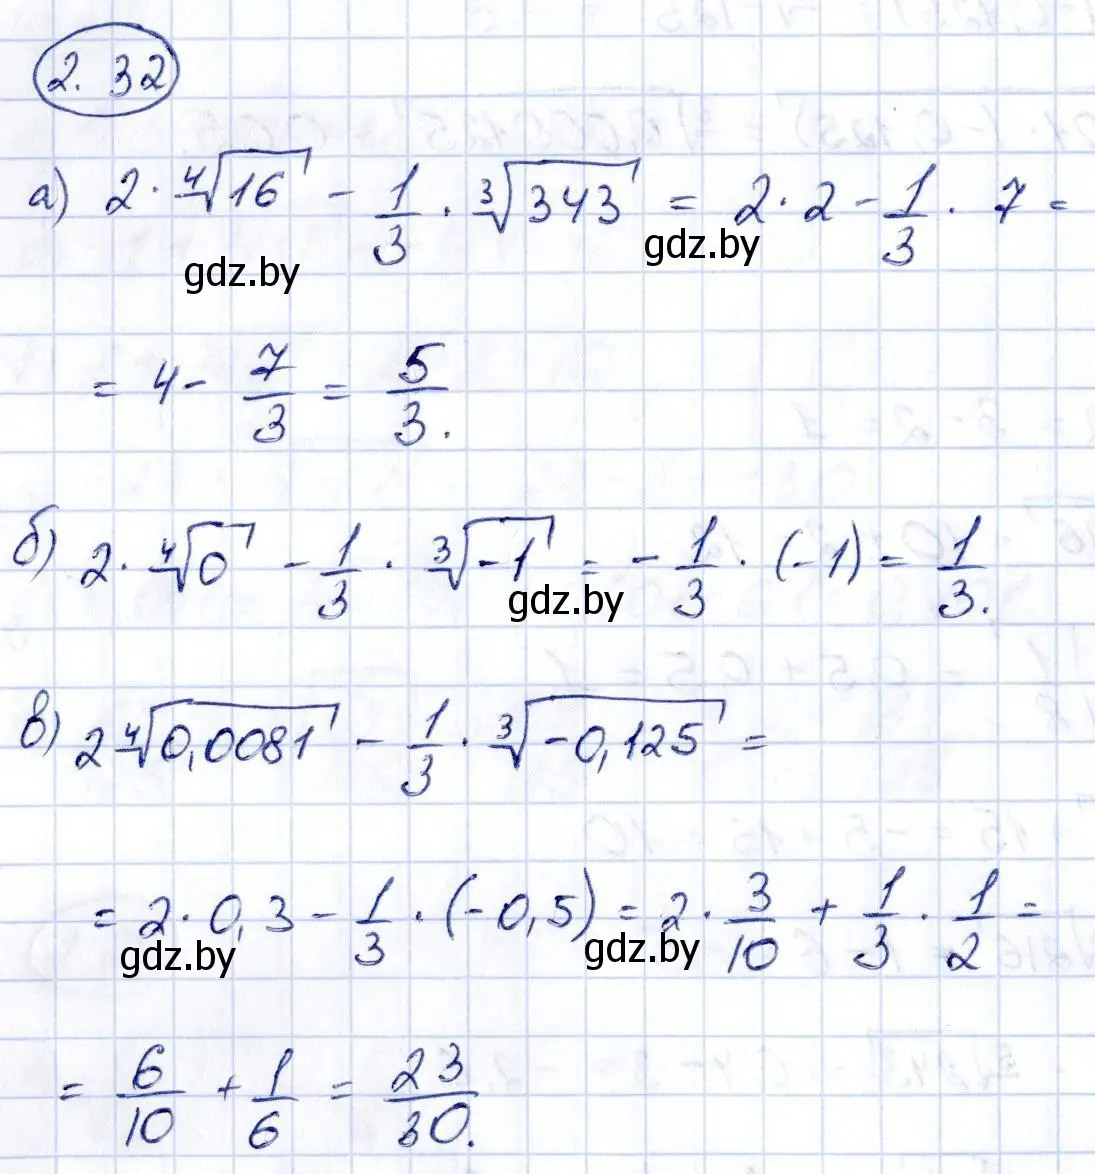 2. 32
а) 2 · ⁴√16 − 1/3 · ³√343 = 2 · 2 − 1/3 · 7 =
gdz.by gdz.by
= 4 − 7/3 = 5/3.
б) 2 · ⁴√0 − 1/3 · ³√−1 = − 1/3 · (−1) = 1/3.
gdz.by
в) 2 ⁴√0,0081 − 1/3 · ³√−0,125 =
= 2 · 0,3 − 1/3 · (−0,5) = 2 · 3/10 + 1/3 · 1/2 =
gdz.by gdz.by
= 6/10 + 1/6 = 23/30.